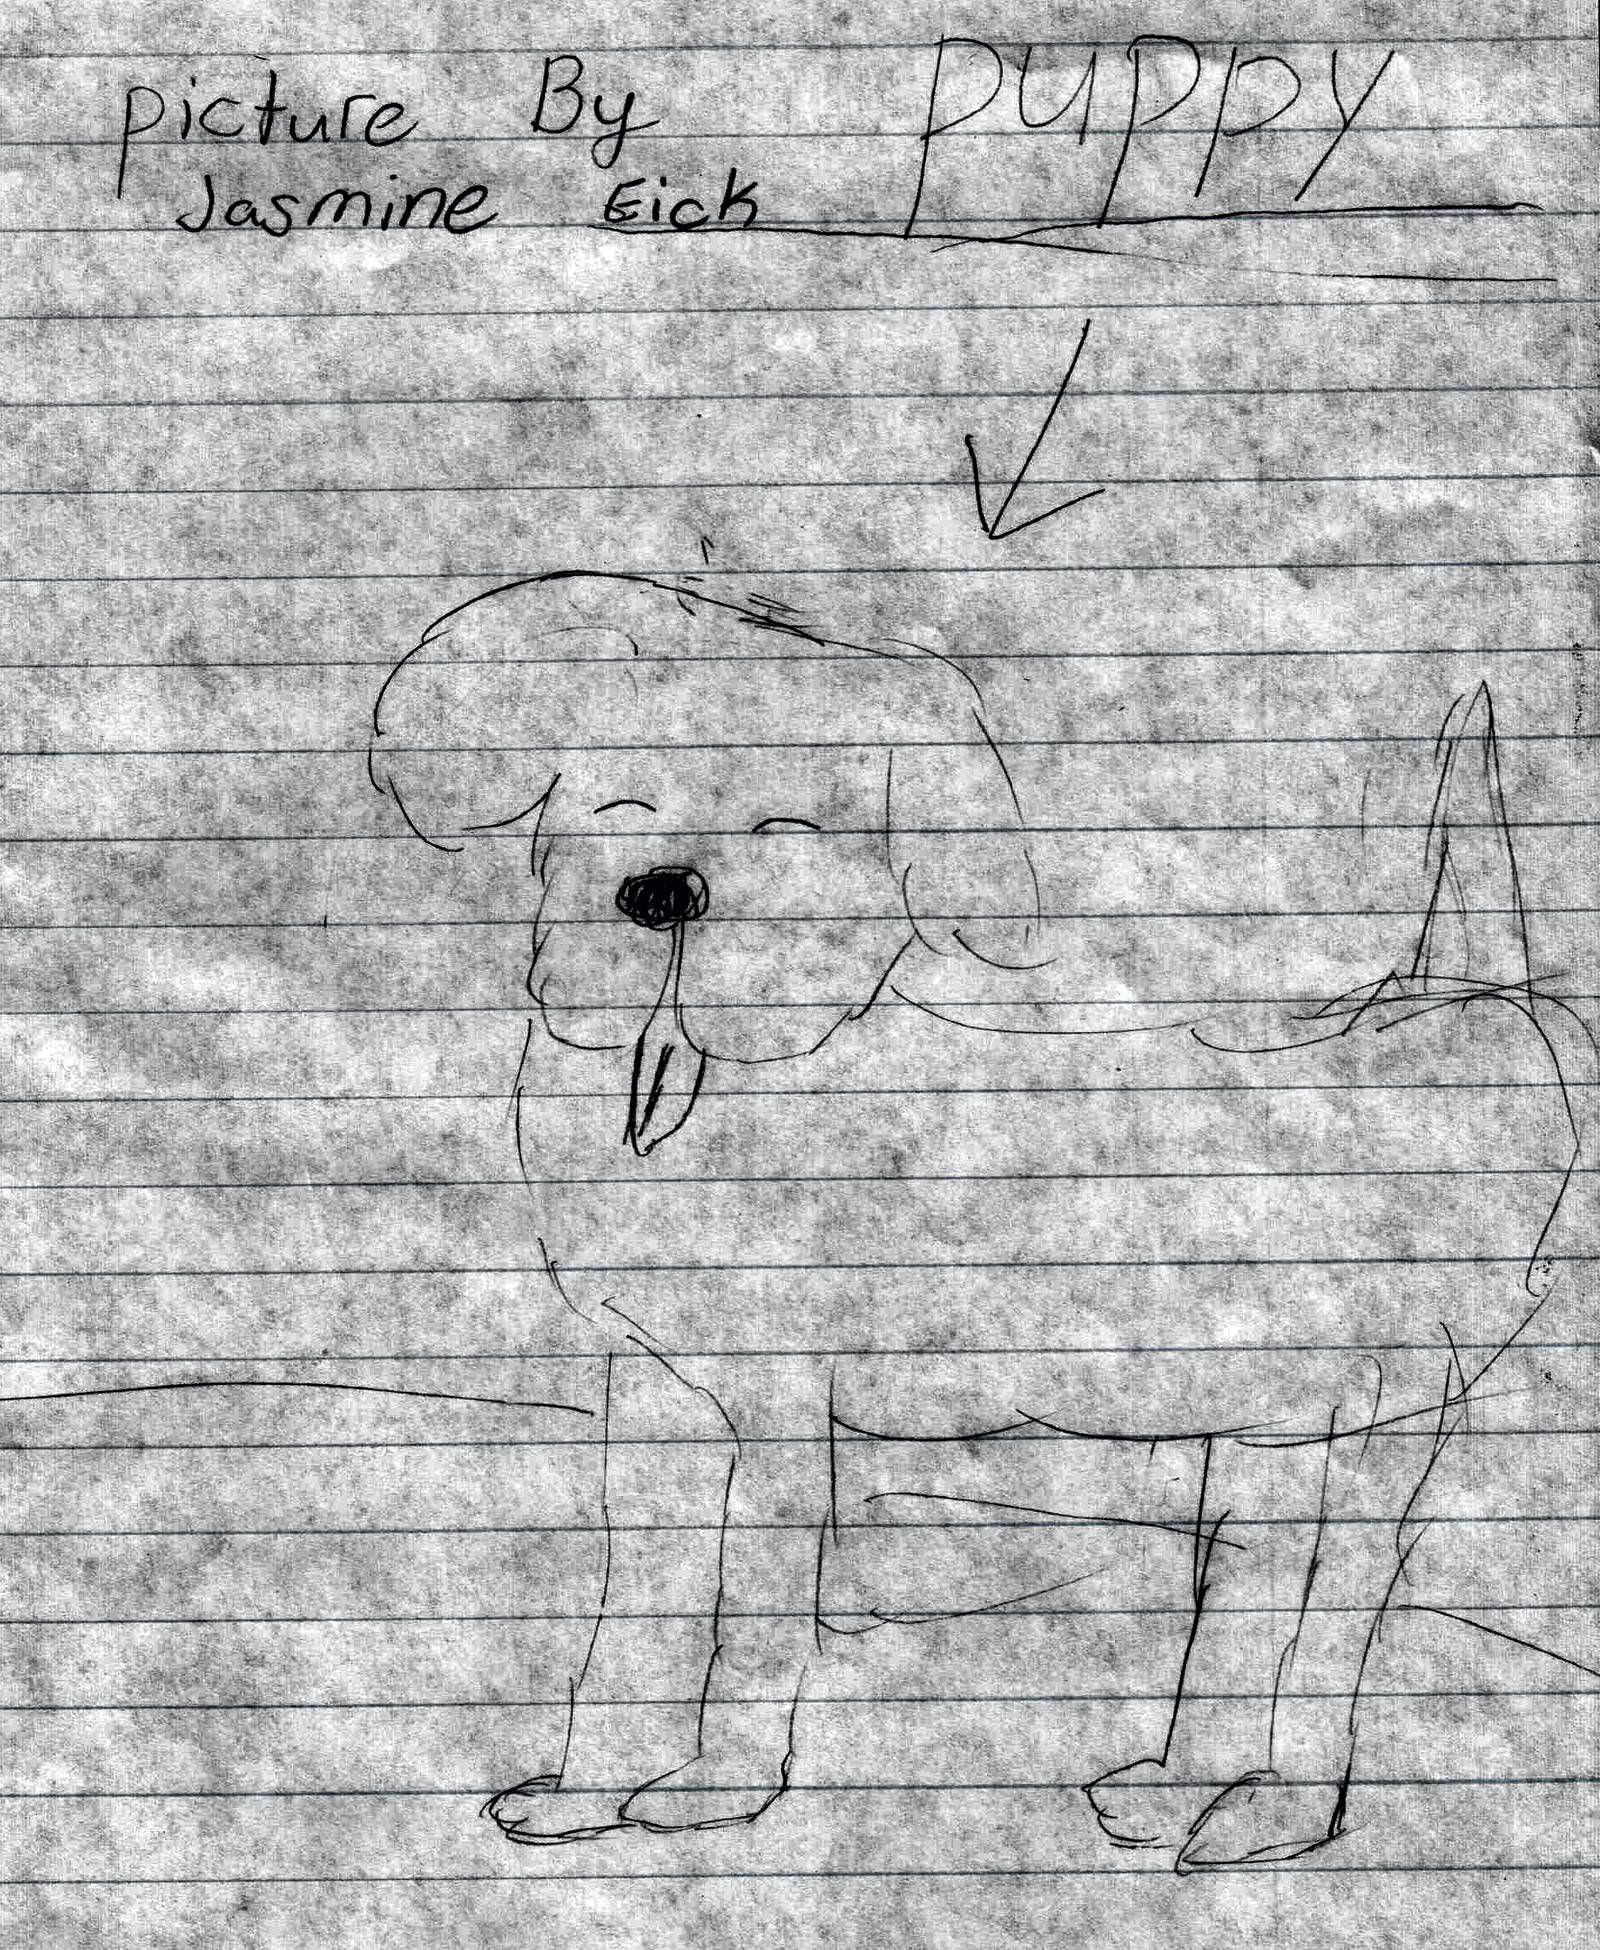 picture By
Jasmine Eick
puppy